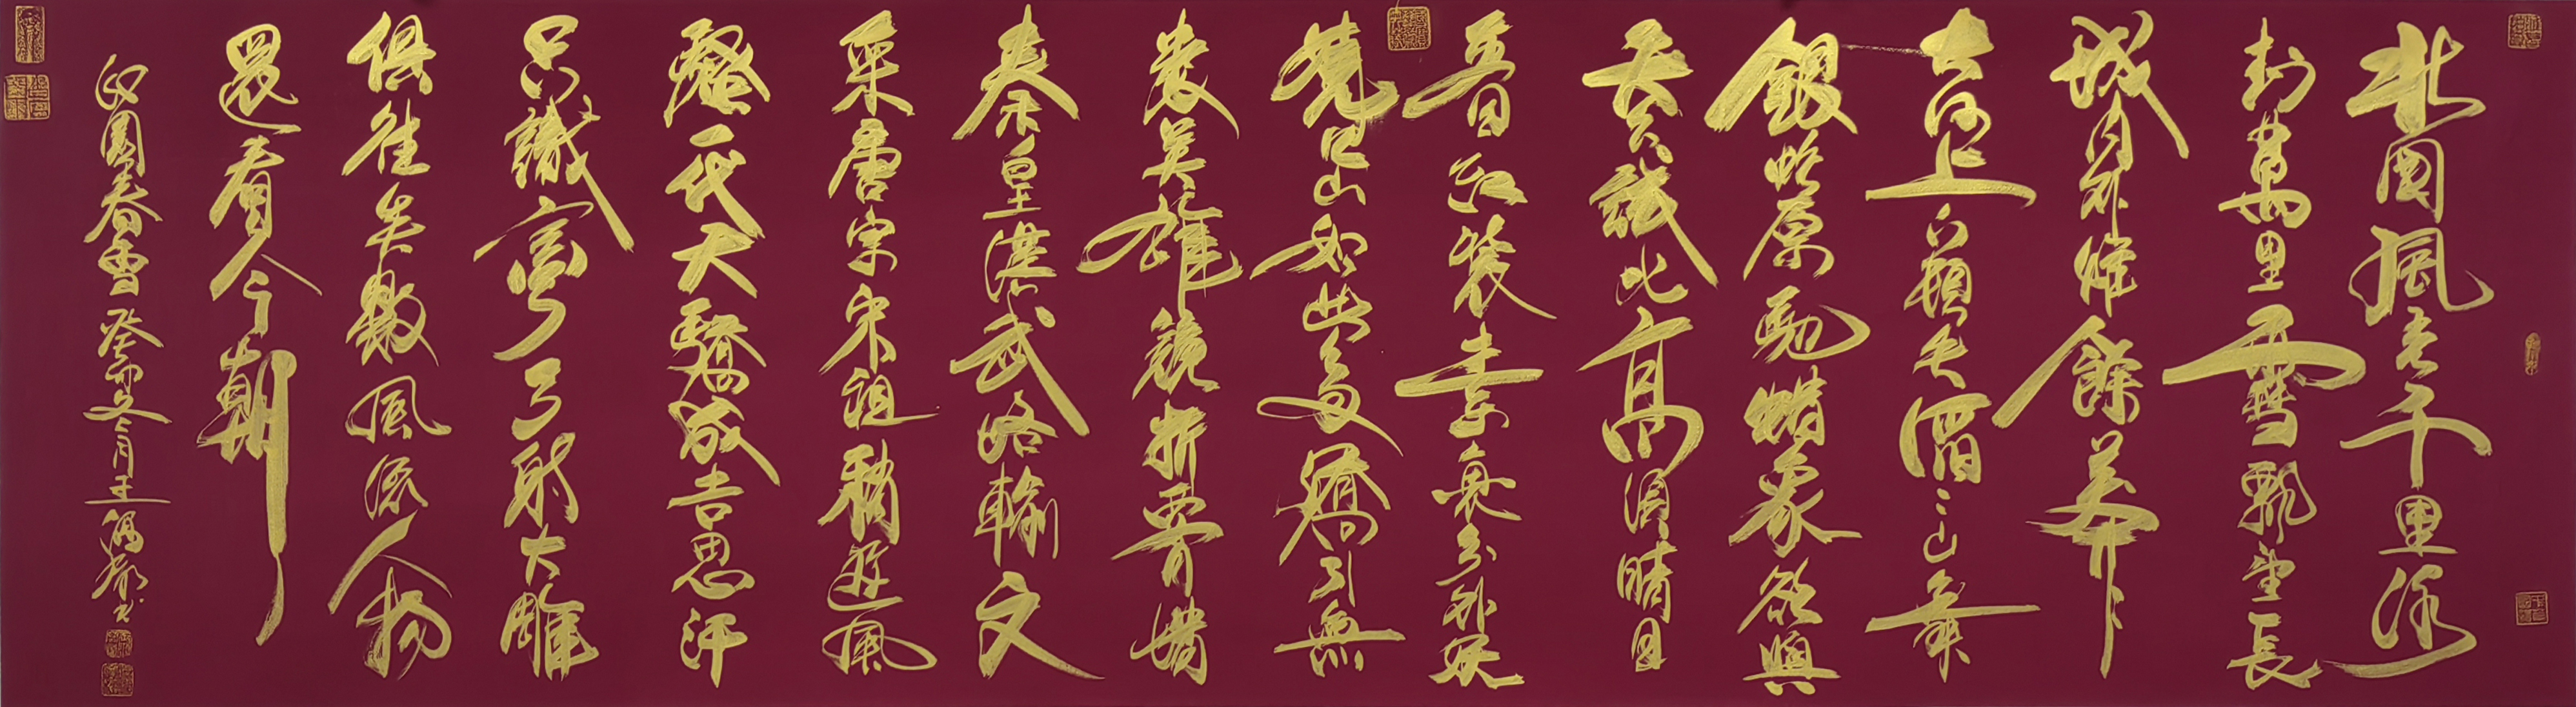 北國風光千里冰
封萬里雪飄望長
城內外惟餘莽〻
大河上下頓失滔〻山舞
銀蛇原馳蠟象欲與
天公試比高須晴日
看紅裝素裹分外妖
嬈江山如此多嬌引無
數英雄競折腰惜
秦皇漢武略輸文
采唐宗宋祖稍遜風
騷一代天驕成吉思汗
只識彎弓射大雕
俱往矣數風流人物
還看今朝
沁園春雪 癸卯冬月王